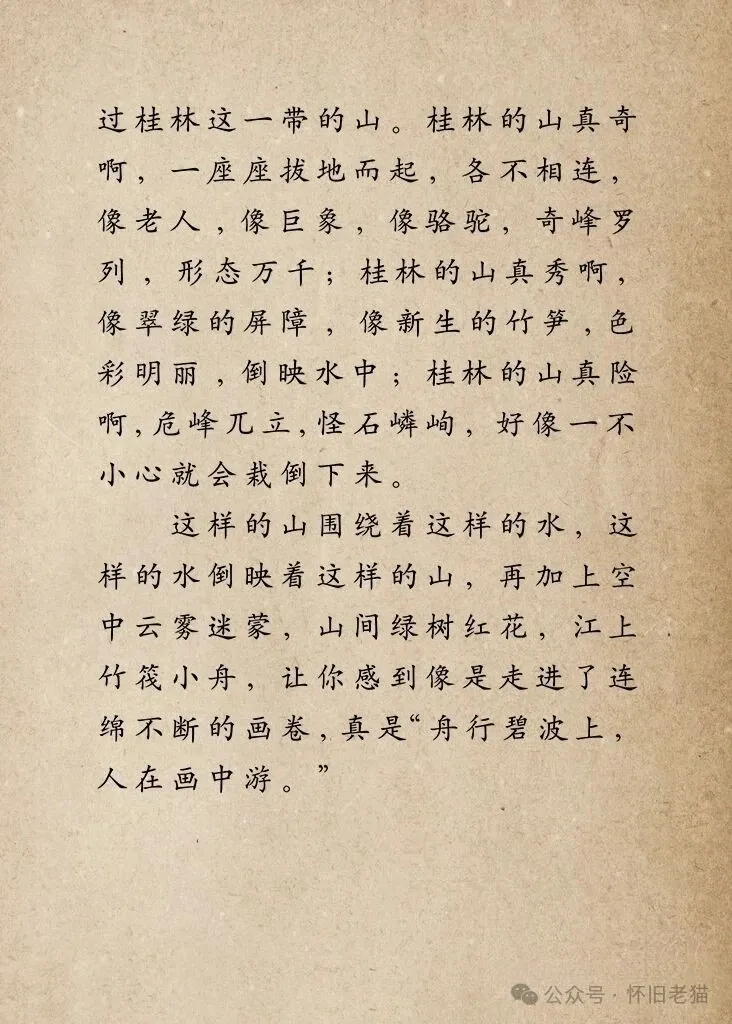 过桂林这一带的山。桂林的山真奇
啊，一座座拔地而起，各不相连，
像老人，像巨象，像骆驼，奇峰罗
列，形态万千；桂林的山真秀啊，
像翠绿的屏障，像新生的竹笋，色
彩明丽，倒映水中；桂林的山真险
啊，危峰兀立，怪石嶙峋，好像一不
小心就会栽倒下来。
这样的山围绕着这样的水，这
样的水倒映着这样的山，再加上空
中云雾迷蒙，山间绿树红花，江上
竹筏小舟，让你感到像是走进了连
绵不断的画卷，真是“舟行碧波上，
人在画中游。”
公众号·怀旧老猫